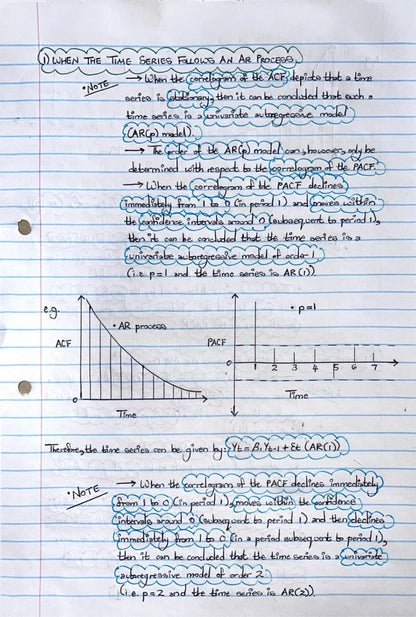 1) WHEN THE TIME SERIES FOLLOWS AN AR PROCESS
• NOTE → When the correlogram of the ACF depicts that a time
series is stationary, then it can be concluded that such a
time series is a univariate autoregressive model
(AR(p) model).
→ The order of the AR(p) model can, however, only be
determined with respect to the correlogram of the PACF.
→ When the correlogram of the PACF declines
immediately from 1 to 0 (in period 1) and moves within
the confidence intervals around 0 (subsequent to period 1),
then it can be concluded that the time series is a
univariate autoregressive model of order 1
(i.e. p=1 and the time series is AR(1))
e.g.
ACF
• AR process
0
Time
PACF
• p=1
0
1 2 3 4 5 6 7
Time
Therefore, the time series can be given by: Yt = β1Yt-1 + εt (AR(1))
• NOTE → When the correlogram of the PACF declines immediately
from 1 to 0 (in period 1), moves within the confidence
intervals around 0 (subsequent to period 1) and then declines
immediately from 1 to 0 (in a period subsequent to period 1),
then it can be concluded that the time series is a univariate
autoregressive model of order 2
(i.e. p=2 and the time series is AR(2)).